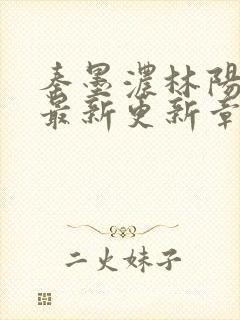 秦墨濃林陽
最新更新章
二火妹子